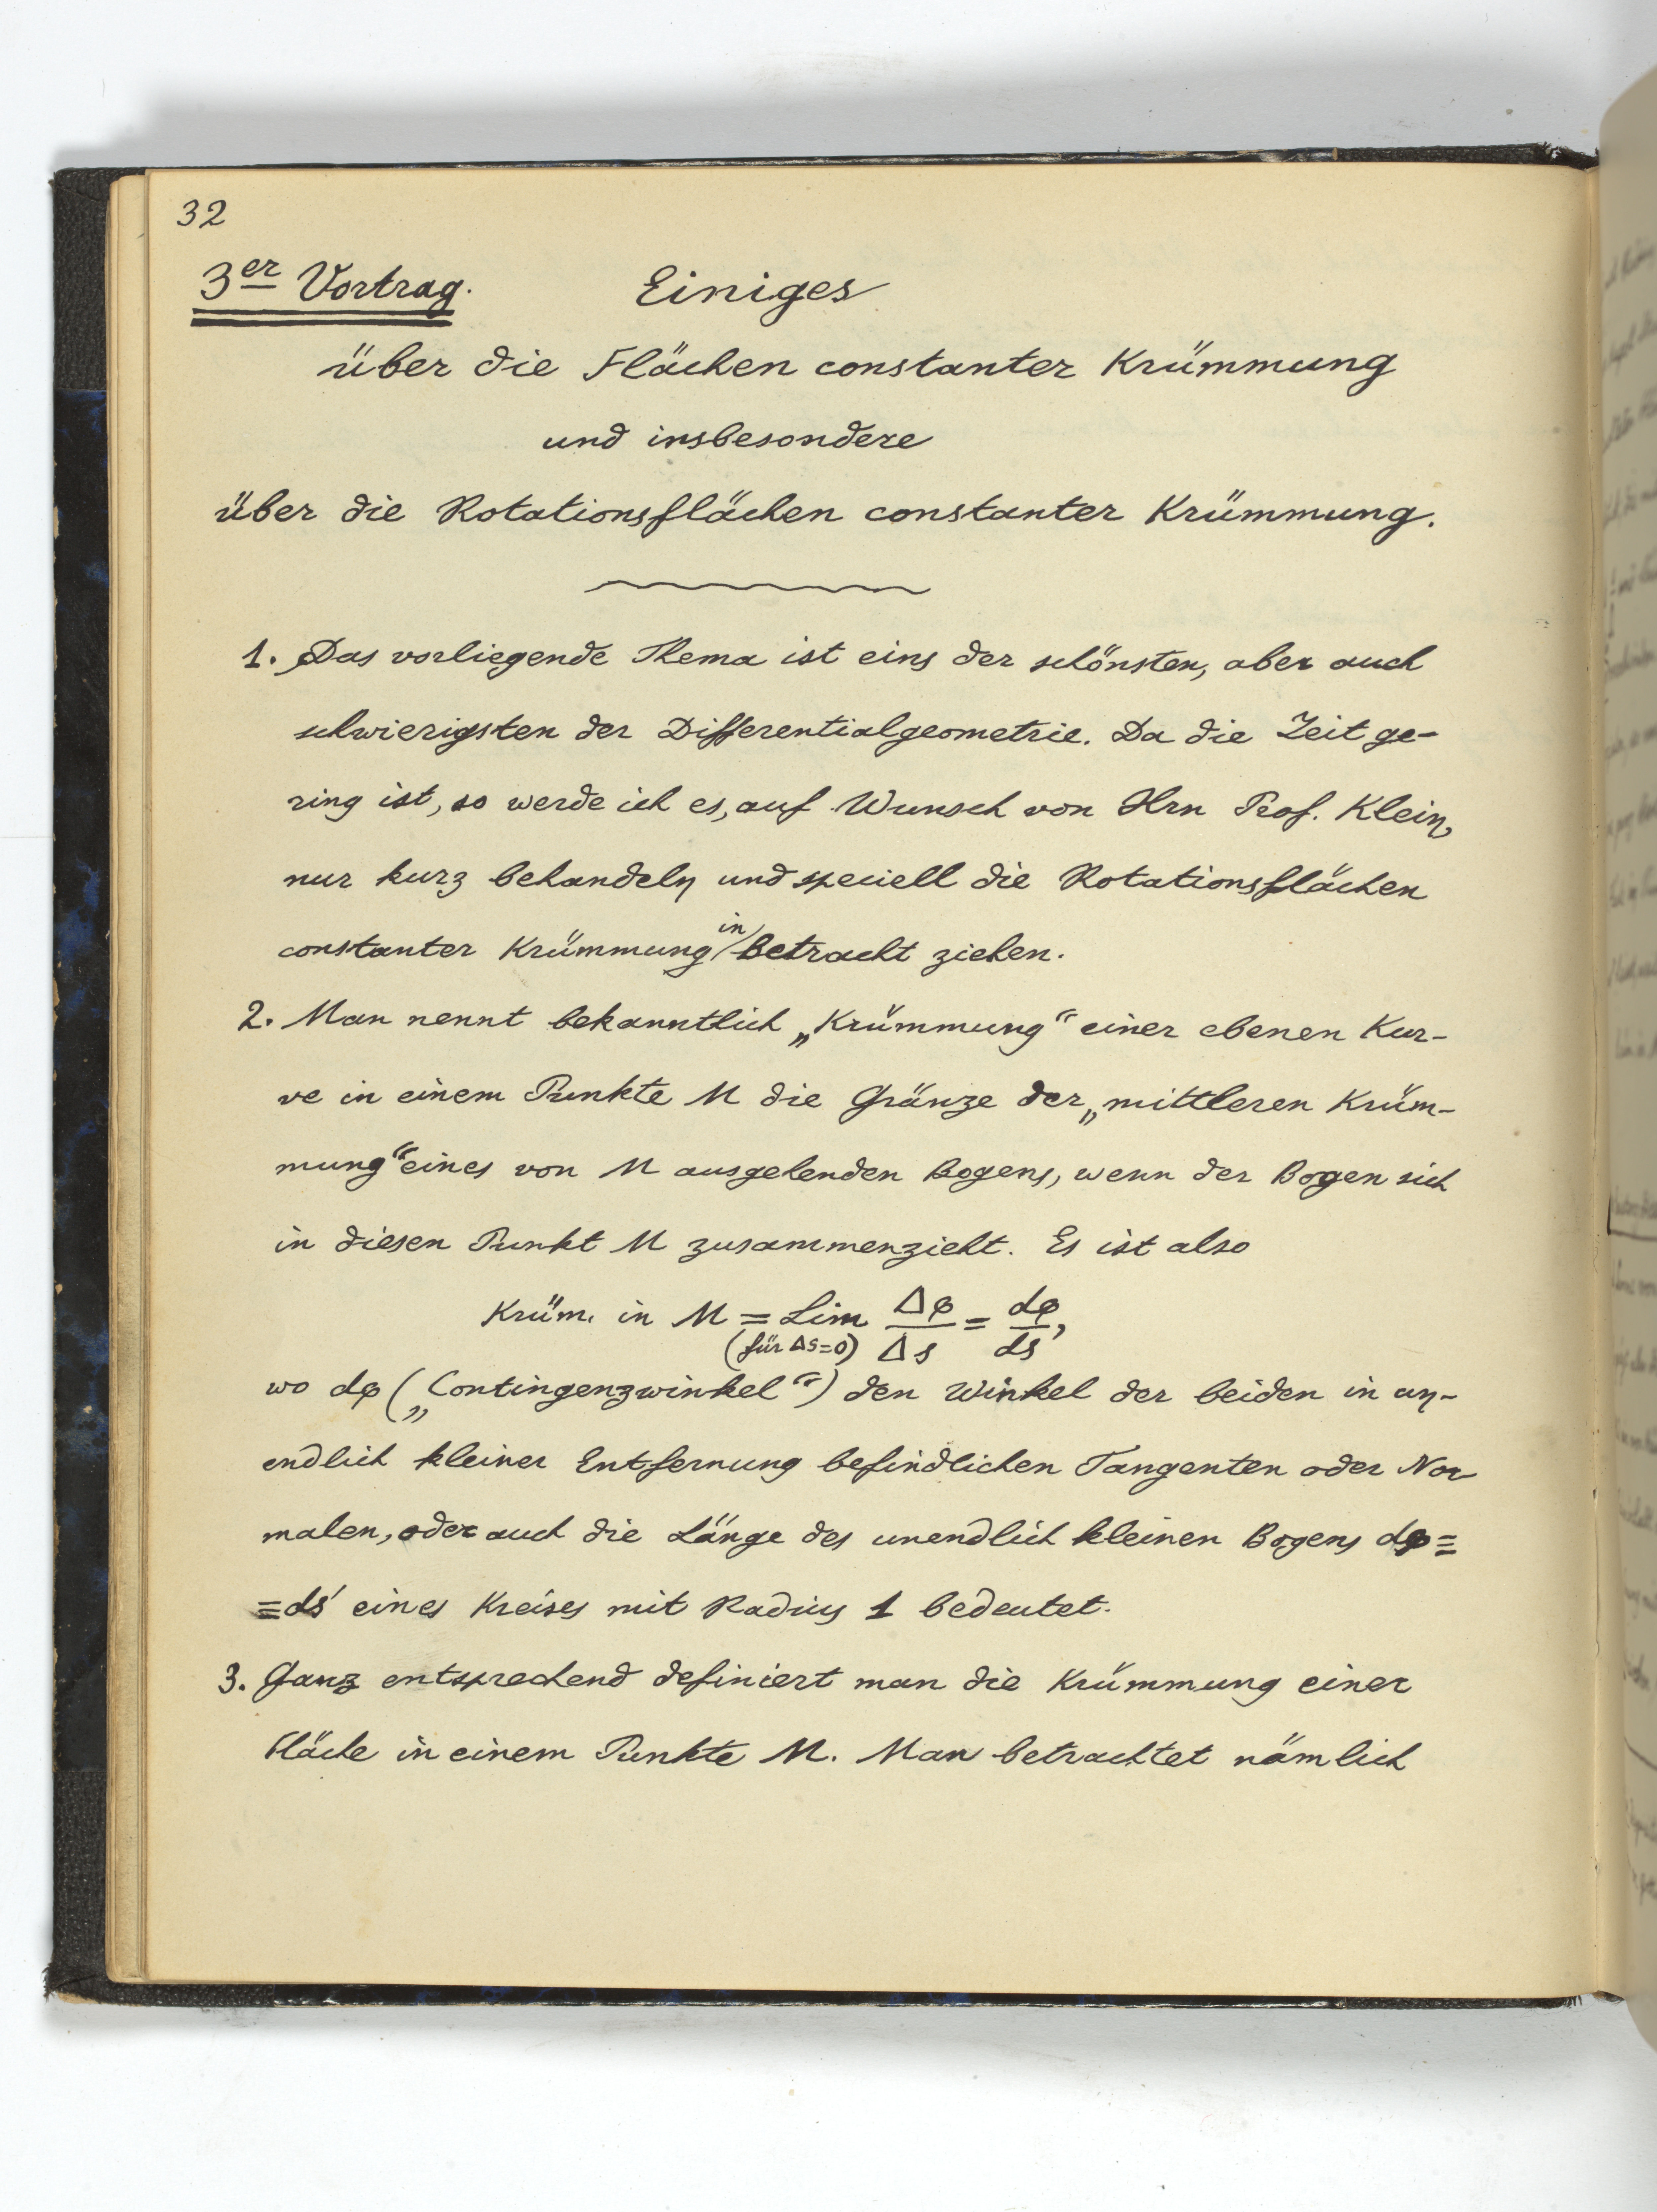 32
3er Vortrag. Einiges
über die Flächen constanter Krümmung
und insbesondere
über die Rotationsflächen constanter Krümmung.
1. Das vorliegende Thema ist eins der schönsten, aber auch
schwierigsten der Differentialgeometrie. Da die Zeit ge-
ring ist, so werde ich es, auf Wunsch von Hrn Prof. Klein,
nur kurz behandeln und speciell die Rotationsflächen
constanter Krümmung in betracht ziehen.
2. Man nennt bekanntlich „Krümmung“ einer ebenen Kur-
ve in einem Punkte M die Gränze der „mittleren Krüm-
mung“ eines von M ausgehenden Bogens, wenn der Bogen sich
in diesen Punkt M zusammenzieht. Es ist also
Krüm. in M = Lim Δφ/Δs = dφ/ds,
(für Δs=0)
wo dφ („Contingenzwinkel“) den Winkel der beiden in un-
endlich kleiner Entfernung befindlichen Tangenten oder Nor-
malen, oder auch die Länge des unendlich kleinen Bogens dφ=
=ds' eines Kreises mit Radius 1 bedeutet.
3. Ganz entsprechend definiert man die Krümmung einer
Fläche in einem Punkte M. Man betrachtet nämlich